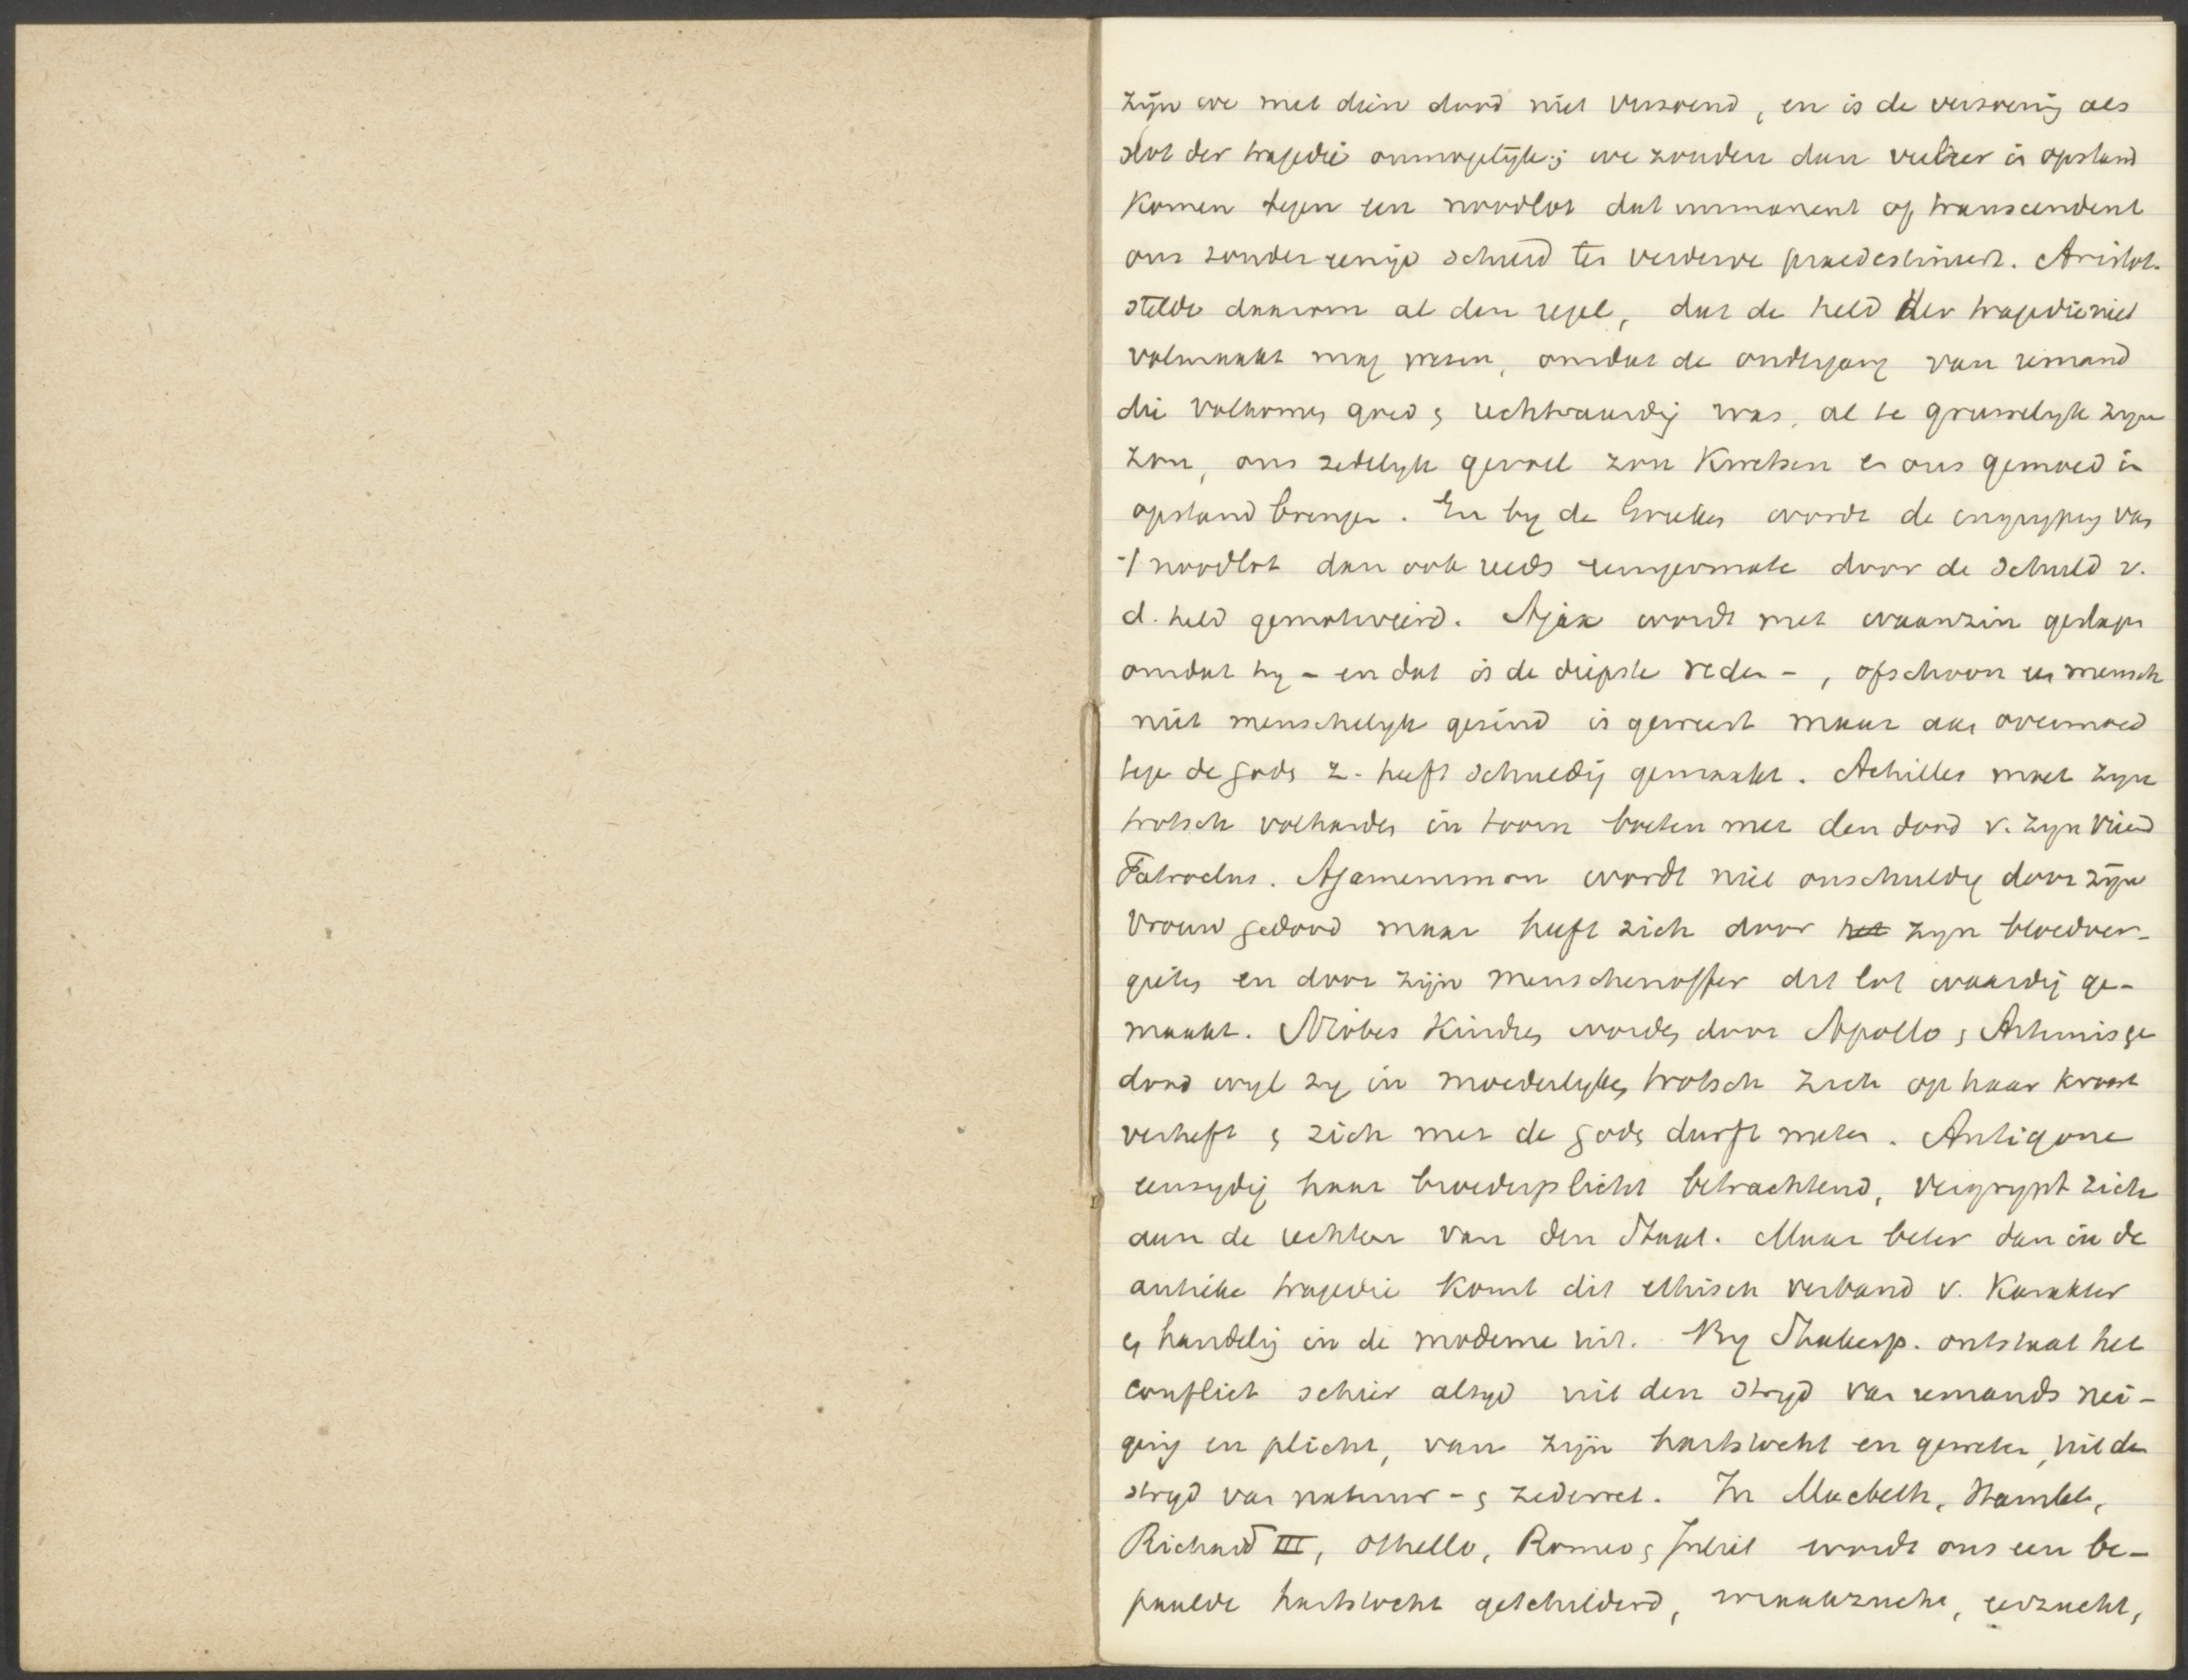 zijn we met dien dood niet verzoend, en is de verzoening als
slot der tragedie onmogelijk; we zouden dan veeleer in opstand
komen tegen een noodlot dat immanent of transcendent
ons zonder eenige schuld ten verderve praedestineert. Aristot.
stelde daarom al den regel, dat de held der tragedie niet
volmaakt mag wezen, omdat de ondergang van iemand
die volkomen goed & rechtvaardig was, al te gruwelijk zijn
zou, ons zedelijk gevoel zou kwetsen en ons gemoed in
opstand brengen. En bij de Grieken wordt de ingrijping van
't noodlot dan ook reeds eenigermate door de schuld v.
d. held gemotiveerd. Ajax wordt met waanzin geslagen
omdat hij - en dat is de diepste reden -, ofschoon een mensch
niet menschelijk gezind is geweest maar aan overmoed
tegen de goden z. heeft schuldig gemaakt. Achilles moet zijn
trotsch volharden in toorn boeten met den dood v. zijn vriend
Patroclus. Agamemmon wordt niet onschuldig door zijn
vrouw gedood maar heeft zich door het zijn bloedver-
gieten en door zijn menschenoffer dit lot waardig ge-
maakt. Niobes kinderen worden door Apollo & Artemis ge
dood wijl zij in moederlijken trotsch zich op haar kroost
verheft & zich met de goden durft meten. Antigone
eenzijdig haar broederplicht betrachtend, vergrijpt zich
aan de rechten van den Staat. Maar beter dan in de
antieke tragedie komt dit ethisch verband v. karakter
en handeling in de moderne uit. Bij Shakesp. ontstaat het
conflict schier altijd uit den strijd van iemands nei-
ging en plicht, van zijn hartstocht en geweten, uit den
strijd van natuur- & zedewet. In Macbeth, Hamlet,
Richard III, Othello, Romeo & Juliet wordt ons een be-
paalde hartstocht geschilderd, wraakzucht, eerzucht,